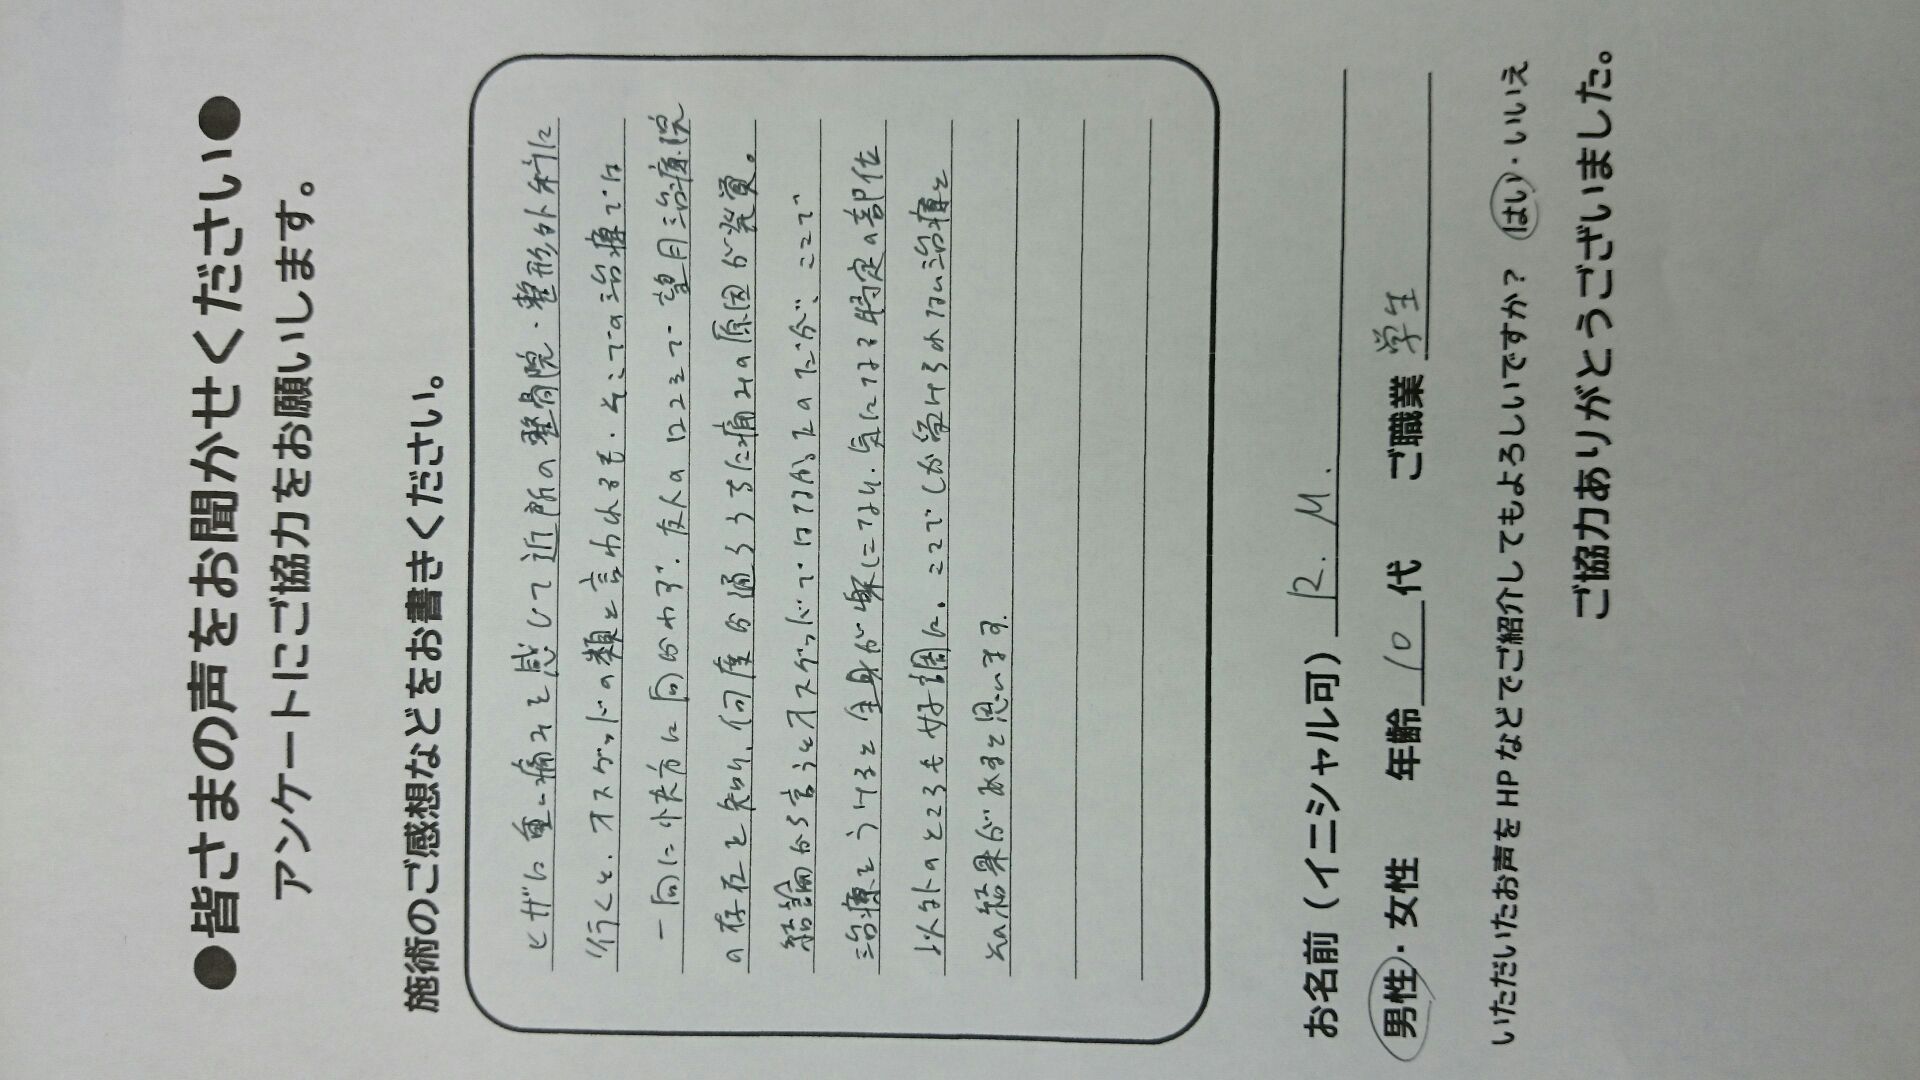 ●皆さまの声をお聞かせください●
アンケートにご協力をお願いします。
施術のご感想などをお書きください。
ヒザに重い痛みを感じて近所の整骨院・整形外科に
行くと、オスグッドの類と言われるも、そこでの治療では
一向に快方に向かわず、友人の口コミで望月治療院
の存在を知り、何度か通ううちに痛みの原因が発覚。
結論から言うとオスグッドではなかったのだが、ここで
治療をうけると全身が楽になり、気になる特定の部位
以外のところも好調に。ここでしか受けられない治療と
その結果があると思います。
お名前（イニシャル可） R. M.
男性・女性 年齢 10 代 ご職業 学生
いただいたお声をHPなどでご紹介してもよろしいですか？ はい・いいえ
ご協力ありがとうございました。